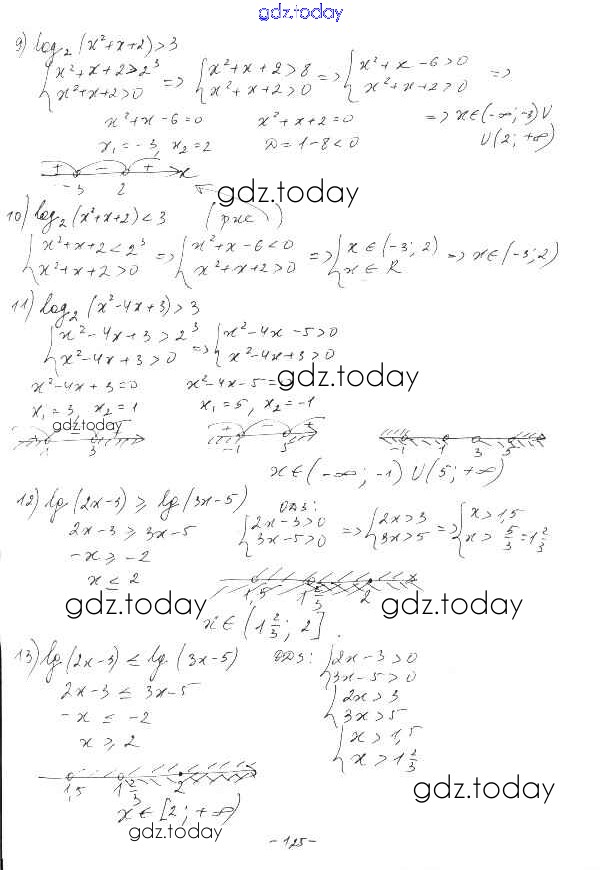 gdz.today
9) log₂(x²+x+2)>3
{x²+x+2>2³ => {x²+x+2>8 => {x²+x-6>0 =>
{x²+x+2>0 {x²+x+2>0 {x²+x+2>0
x²+x-6=0 x²+x+2=0 => x∈(-∞;-3)∪
x₁=-3, x₂=2 D=1-8<0 ∪(2;+∞)
+ - + x
-3 2
gdz.today
10) log₂(x²+x+2)<3 (рис )
{x²+x+2<2³ => {x²+x-6<0 => {x∈(-3;2) => x∈(-3;2)
{x²+x+2>0 {x²+x+2>0 {x∈R
11) log₂(x²-4x+3)>3
{x²-4x+3>2³ => {x²-4x-5>0
{x²-4x+3>0 {x²-4x+3>0
x²-4x+3=0 x²-4x-5=0
gdz.today
x₁=3, x₂=1 x₁=5, x₂=-1
gdz.today
+ - + + - +
1 3 -1 5 -1 1 3 5
x∈(-∞;-1)∪(5;+∞)
12) lg(2x-3)≥lg(3x-5) ОДЗ:
2x-3≥3x-5 {2x-3>0 => {2x>3 => {x>1,5
-x≥-2 {3x-5>0 {3x>5 {x>5/3=1 2/3
x≤2
1,5 1 2/3 2
gdz.today gdz.today
x∈(1 2/3; 2].
13) lg(2x-3)≤lg(3x-5) ОДЗ: {2x-3>0
2x-3≤3x-5 {3x-5>0
-x≤-2 {2x>3
x≥2 {3x>5
{x>1,5
{x>1 2/3
1,5 1 2/3 2
gdz.today
x∈[2;+∞)
gdz.today
-125-